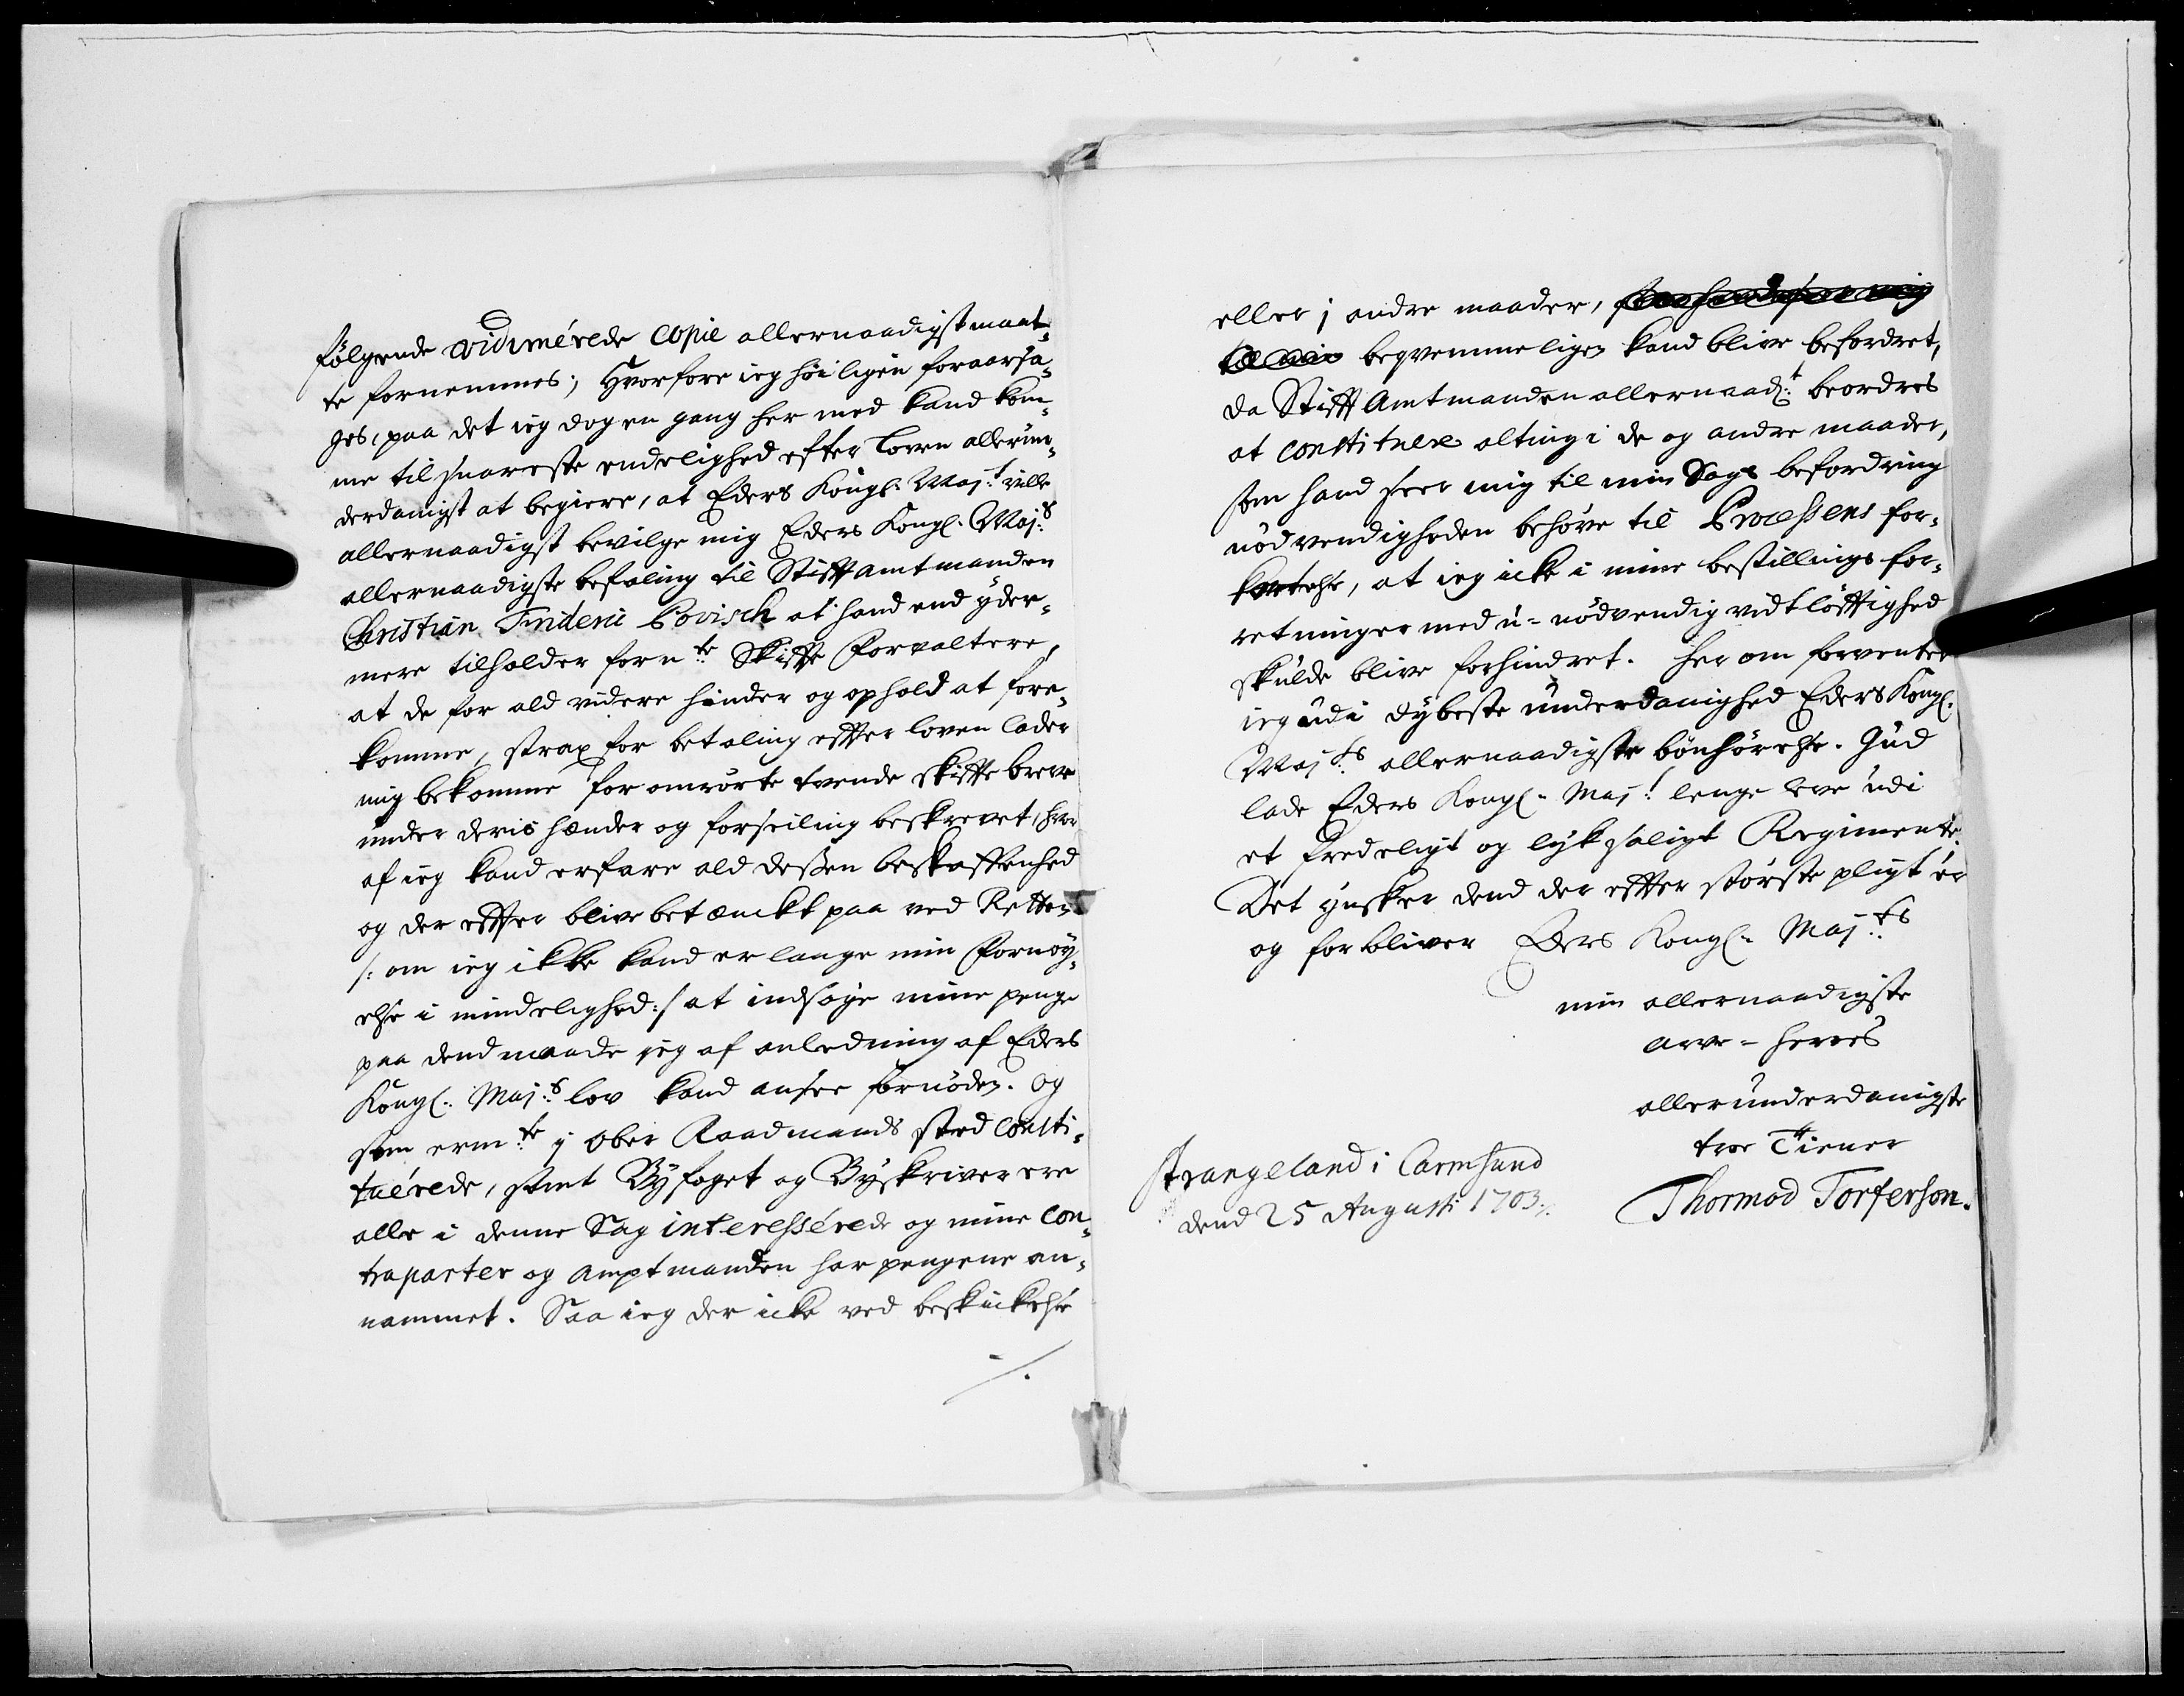 følgende vidimerede copie allernaadigst maat-
te fornemmes; Hvorfore ieg höiligen foraarsa-
ges, paa det ieg dog en gang her med kand kom-
me til snareste endelighed efter loven allerun-
derdanigst at begiere, at Eders Kongl. Maj:t ville
allernaadigst bevilge mig Eders Kongl. Maj:s
allernaadigste befaling til Stifft amtmanden
Christian Frideric Povisch at hand end yder-
mere tilholder forn:te Skiffte Forvaltere,
at de for ald videre hinder og ophold at fore-
komme, strax for betaling effter loven lader
mig bekomme for omrörte tvende skiffte breve
under deris hænder og forseiling beskrevet, hvor
af ieg kand erfare ald dessen beskaffenhed
og der effter blive betænckt paa ved Retten
/: om ieg ikke kand erlange min Fornöy-
else i mindelighed :/ at indsöge mine penge
paa dend maade ieg af anledning af Eders
Kongl: Maj:s lov kand ansee fornöden. og
som erm:te j Ober Raadmands sted Consti-
tuerede, samt Byfoget og Byskriver ere
alle i denne Sag interesserede og mine con-
traparter og amptmanden har pengene an-
nammet. Saa ieg der icke ved beskickelse
./.
eller j andre maader,
begvemmeligen kand blive befordret,
da Stifft Amtmanden allernaad:t beordres
at constituere alting i de og andre maader,
som hand seer mig til min Sags befordring
nödvendigheden behöve til Processens for-
kortelse, at ieg icke i mine bestillings for-
retninger med u-nödvendig vidtlöfftighed
skulde blive forhindret. her om forventer
ieg udi dybeste underdanighed Eders Kongl.
Maj:ts allernaadigste bönhörelse. Gud
lade Eders Kongl: Maj:t lenge leve udi
et fredeligt og lyksaligt Regimente.
Det ynsker dend der effter störste pligt er
og forbliver Eders Kongl: Maj:ts
min allernaadigste
arve-herres
allerunderdanigste
troe Tiener
Thormod Torfeson.
Stangeland i Carmsund
dend 25 Augusti 1703.